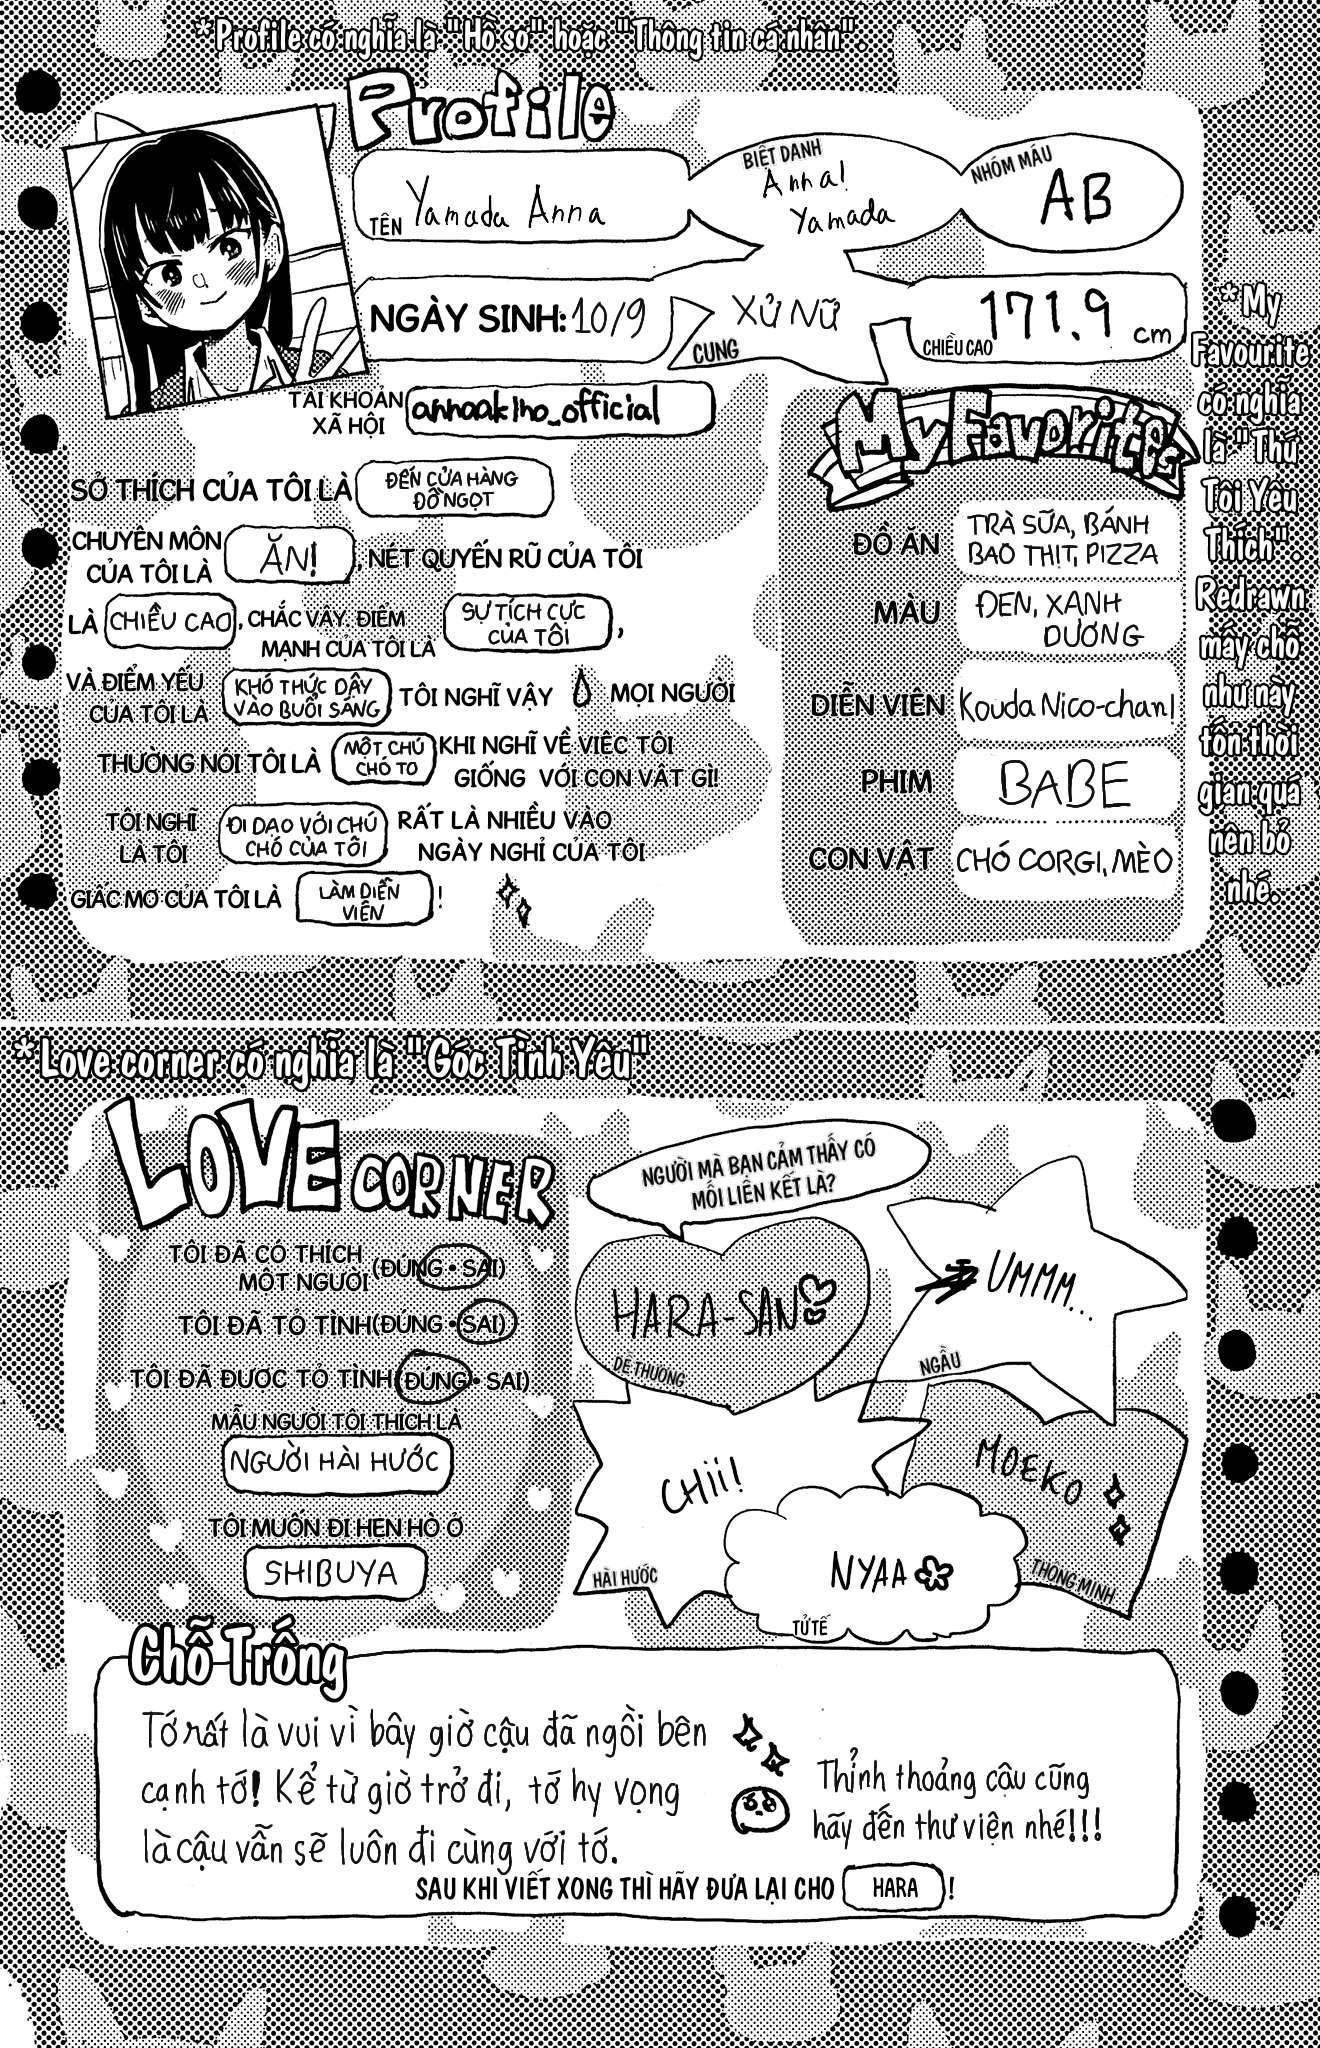 *Profile có nghĩa là "Hồ sơ" hoặc "Thông tin cá nhân".
Profile
TÊN Yamada Anna
BIỆT DANH
Anna!
Yamada
NHÓM MÁU
AB
NGÀY SINH: 10/9
XỬ NỮ
CUNG
171.9 cm
CHIỀU CAO
TÀI KHOẢN
XÃ HỘI
annaakino_official
SỞ THÍCH CỦA TÔI LÀ
ĐẾN CỬA HÀNG
ĐỒ NGỌT
CHUYÊN MÔN
CỦA TÔI LÀ
ĂN!
, NÉT QUYẾN RŨ CỦA TÔI
LÀ
CHIỀU CAO
, CHẮC VẬY. ĐIỂM
MẠNH CỦA TÔI LÀ
SỰ TÍCH CỰC
CỦA TÔI
,
VÀ ĐIỂM YẾU
CỦA TÔI LÀ
KHÓ THỨC DẬY
VÀO BUỔI SÁNG
TÔI NGHĨ VẬY
MỌI NGƯỜI
THƯỜNG NÓI TÔI LÀ
MỘT CHÚ
CHÓ TO
KHI NGHĨ VỀ VIỆC TÔI
GIỐNG VỚI CON VẬT GÌ!
TÔI NGHĨ
LÀ TÔI
ĐI DẠO VỚI CHÚ
CHÓ CỦA TÔI
RẤT LÀ NHIỀU VÀO
NGÀY NGHỈ CỦA TÔI
GIẤC MƠ CỦA TÔI LÀ
LÀM DIỄN
VIÊN
!
My Favorites
ĐỒ ĂN
TRÀ SỮA, BÁNH
BAO THỊT, PIZZA
MÀU
ĐEN, XANH
DƯƠNG
DIỄN VIÊN
Kouda Nico-chan!
PHIM
BABE
CON VẬT
CHÓ CORGI, MÈO
*My
Favourite
có nghĩa
là "Thứ
Tôi Yêu
Thích".
Redrawn
mấy chỗ
như này
tốn thời
gian quá
nên bỏ
nhé.
*Love corner có nghĩa là "Góc Tình Yêu"
LOVE CORNER
TÔI ĐÃ CÓ THÍCH
MỘT NGƯỜI (ĐÚNG • SAI)
TÔI ĐÃ TỎ TÌNH (ĐÚNG • SAI)
TÔI ĐÃ ĐƯỢC TỎ TÌNH (ĐÚNG • SAI)
MẪU NGƯỜI TÔI THÍCH LÀ
NGƯỜI HÀI HƯỚC
TÔI MUỐN ĐI HẸN HÒ Ở
SHIBUYA
NGƯỜI MÀ BẠN CẢM THẤY CÓ
MỐI LIÊN KẾT LÀ?
HARA-SAN
DỄ THƯƠNG
UMMM...
NGẦU
CHII!
HÀI HƯỚC
MOEKO
THÔNG MINH
NYAA
TỬ TẾ
Chỗ Trống
Tớ rất là vui vì bây giờ cậu đã ngồi bên
cạnh tớ! Kể từ giờ trở đi, tớ hy vọng
là cậu vẫn sẽ luôn đi cùng với tớ.
Thỉnh thoảng cậu cũng
hãy đến thư viện nhé!!!
SAU KHI VIẾT XONG THÌ HÃY ĐƯA LẠI CHO HARA !